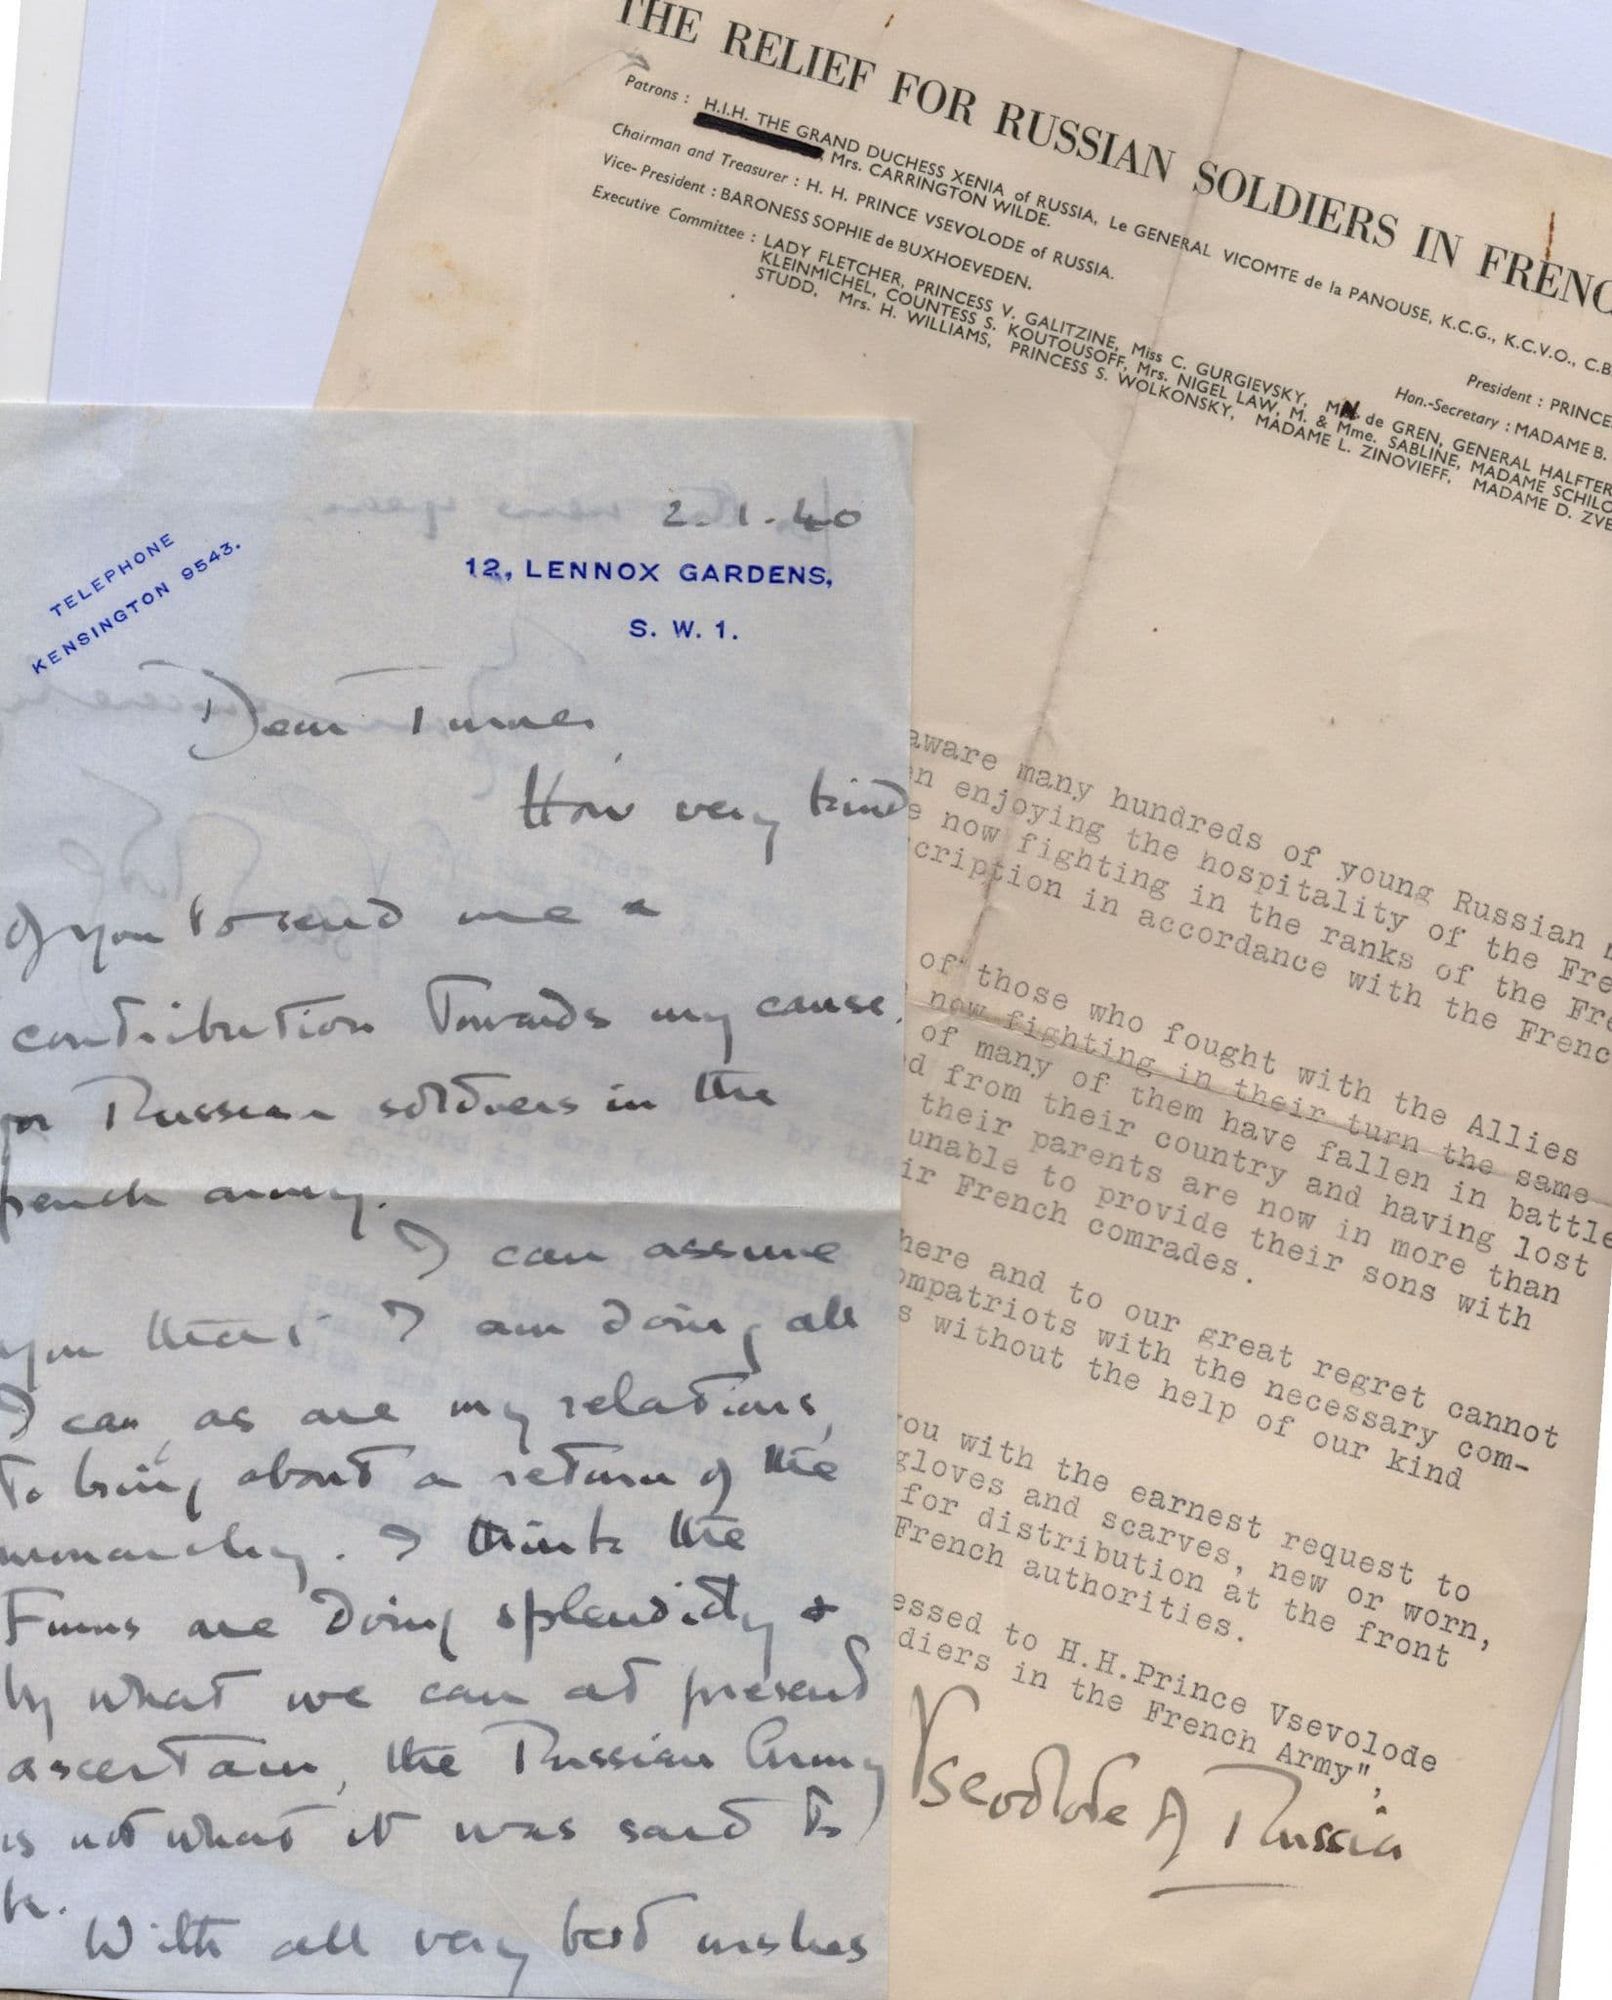 THE RELIEF FOR RUSSIAN SOLDIERS IN FRENC
Patrons : H.I.H. THE GRAND DUCHESS XENIA of RUSSIA, Le GENERAL VICOMTE de la PANOUSE, K.C.G., K.C.V.O., C.B
Mrs. CARRINGTON WILDE.
President : PRINCE
Chairman and Treasurer : H. H. PRINCE VSEVOLODE of RUSSIA.
Hon.-Secretary : MADAME B.
Vice-President : BARONESS SOPHIE de BUXHOEVEDEN.
Executive Committee : LADY FLETCHER, PRINCESS V. GALITZINE, Miss C. GURGIEVSKY, de GREN, GENERAL HALFTER
KLEINMICHEL, COUNTESS S. KOUTOUSOFF, Mrs. NIGEL LAW, M. & Mme. SABLINE, MADAME SCHILO
STUDD, Mrs. H. WILLIAMS, PRINCESS S. WOLKONSKY, MADAME L. ZINOVIEFF, MADAME D. ZVE
aware many hundreds of young Russian
n enjoying the hospitality of the Fre
e now fighting in the ranks of the Fre
cription in accordance with the Frenc
of those who fought with the Allies
now fighting in their turn the same
of many of them have fallen in battle
d from their country and having lost
their parents are now in more than
unable to provide their sons with
ir French comrades.
here and to our great regret cannot
ompatriots with the necessary com-
s without the help of our kind
ou with the earnest request to
gloves and scarves, new or worn,
for distribution at the front
French authorities.
essed to H.H.Prince Vsevolode
diers in the French Army",
Vsevolode of Russia
2.1.40
TELEPHONE
KENSINGTON 9543.
12, LENNOX GARDENS,
S. W. 1.
Dear Turner,
How very kind
of you to send me a
contribution towards my cause,
for Russian soldiers in the
french army.
I can assure
you that I am doing all
I can, as are my relations,
to bring about a return of the
monarchy. I think the
Finns are doing splendidly &
by what we can at present
ascertain, the Russian Army
is not what it was said to
be.
With all very best wishes